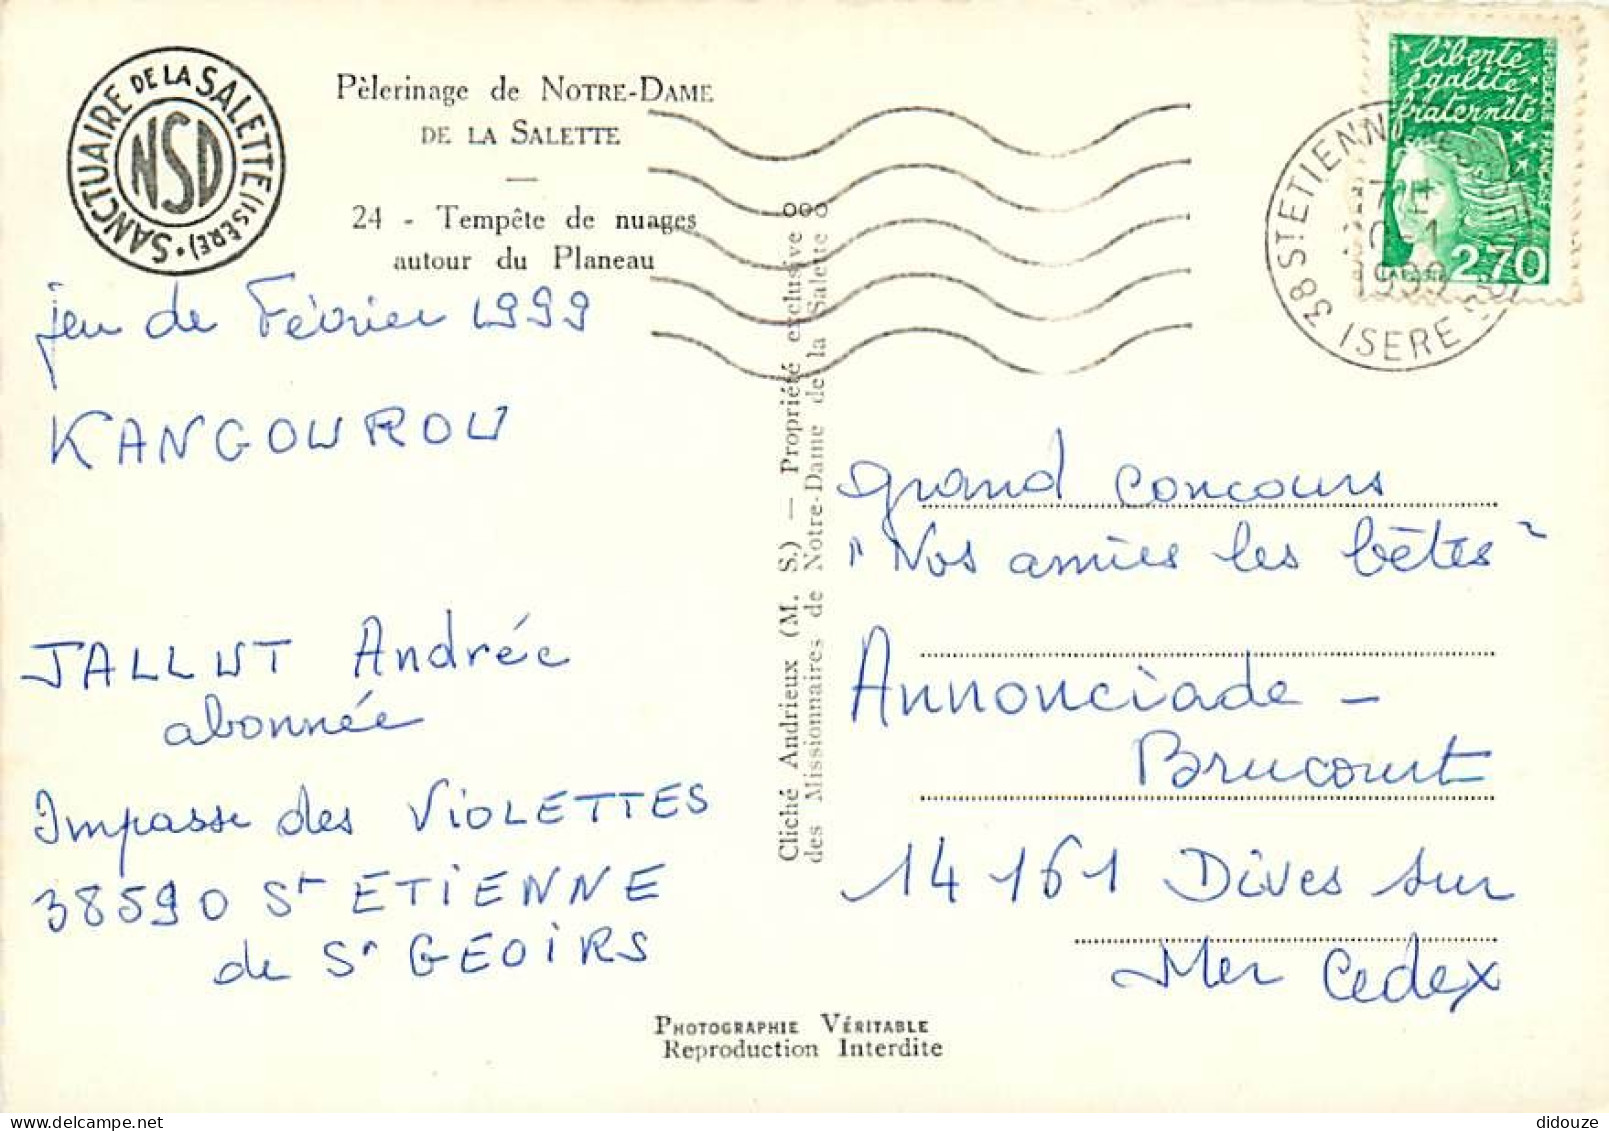 SANCTUAIRE DE LA SALETTE (ISÈRE) •
NSD
Pèlerinage de NOTRE-DAME
DE LA SALETTE
—
24 - Tempête de nuages
autour du Planeau
jeu de Février 1999
KANGOUROU
JALLUT Andrée
abonnée
Impasse des VIOLETTES
38590 St ETIENNE
de St GEOIRS
Cliché Andrieux (M. S.) — Propriété exclusive
des Missionnaires de Notre-Dame de la Salette
ooo
liberté
égalité
fraternité
REPUBLIQUE FRANÇAISE
2,70
38 ST ETIENNE
1999
ISERE
grand concours
"Nos amies les bêtes"
Annonciade -
Brucourt
14161 Dives sur
Mer Cedex
PHOTOGRAPHIE VÉRITABLE
Reproduction Interdite
didouze